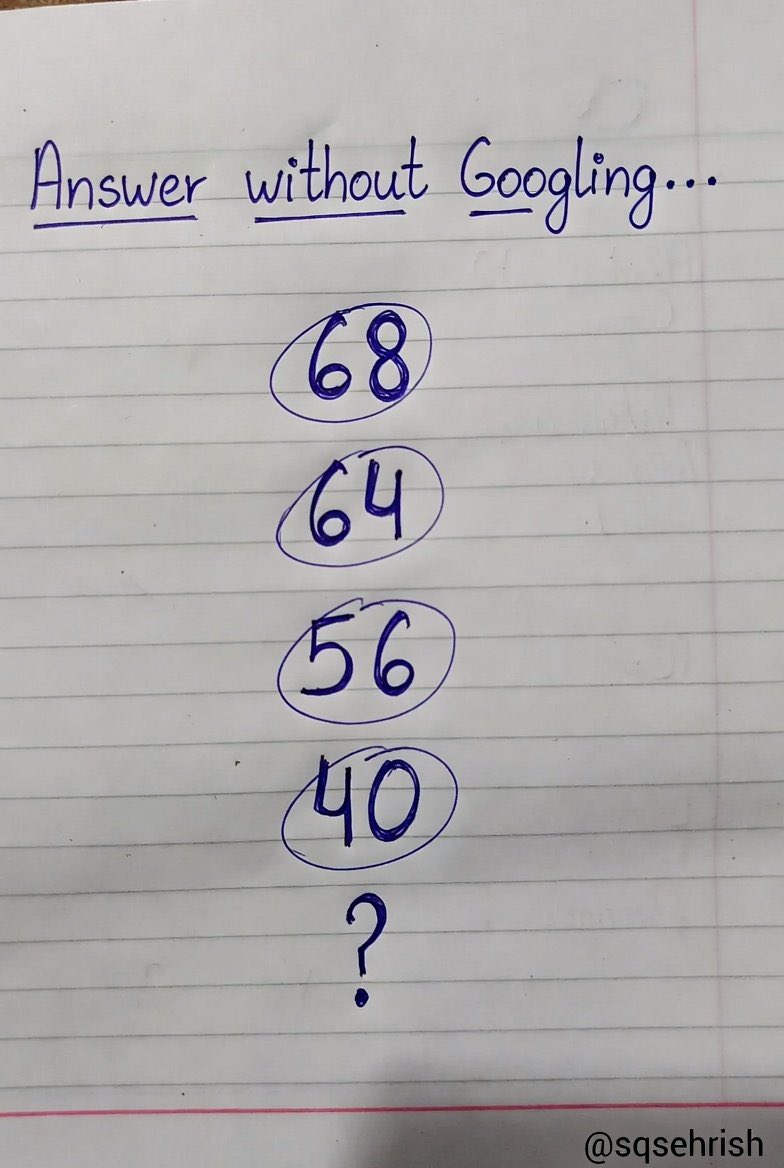 Answer without Googling...
68
64
56
40
?
@sqsehrish